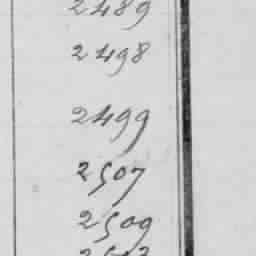 2489
2498
2499
2507
2509